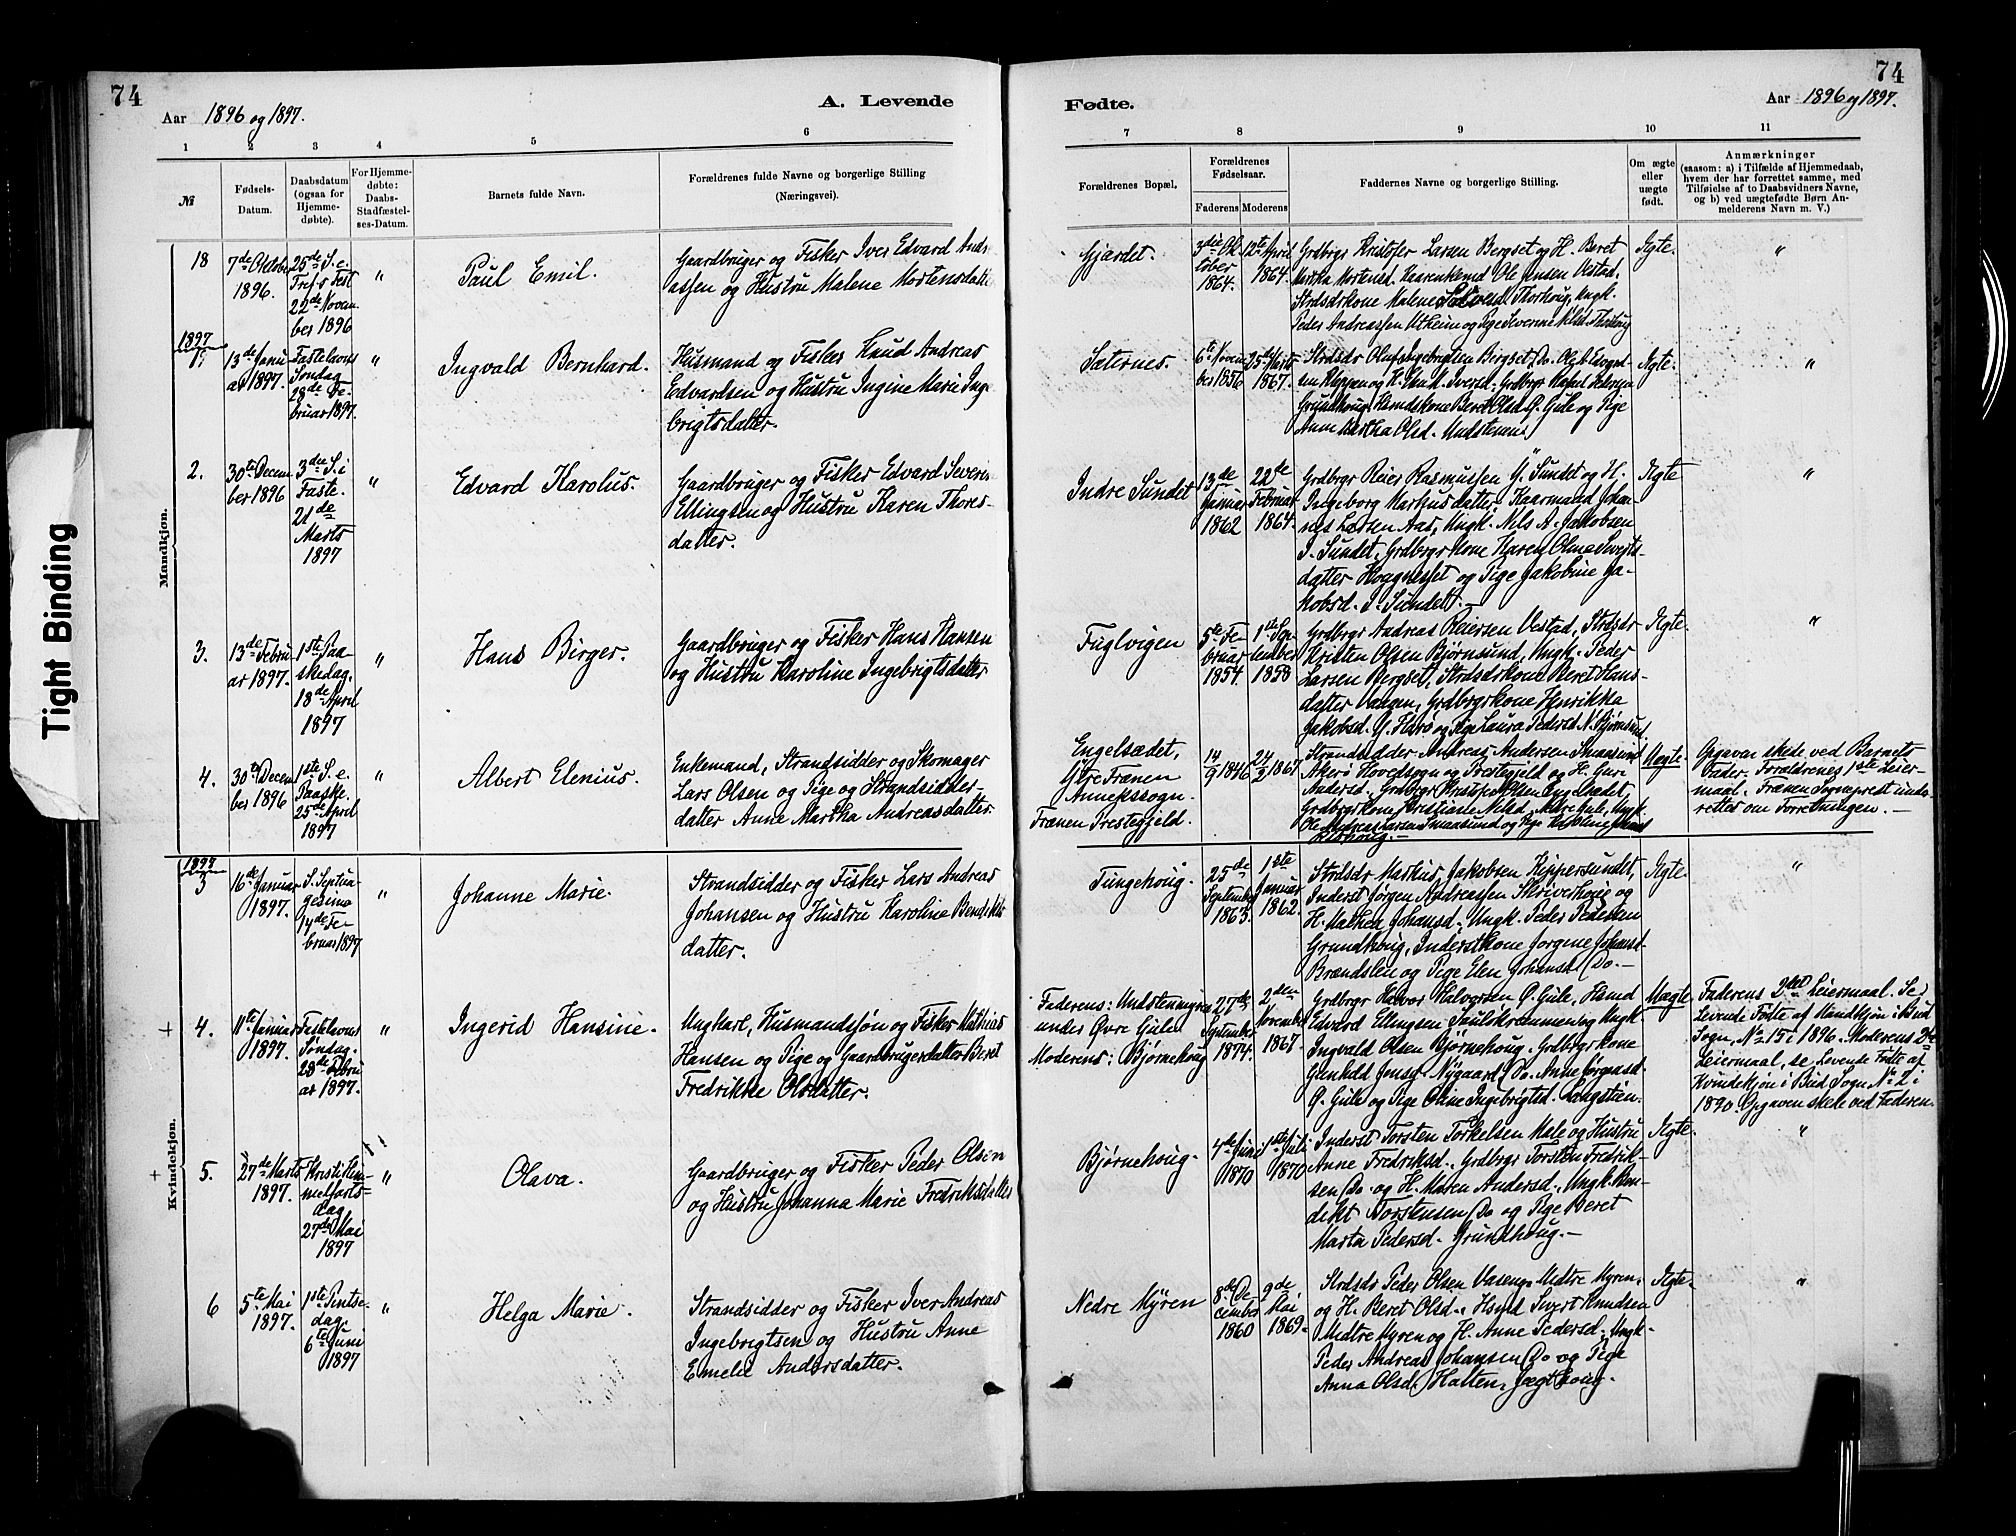 74
Aar 1896 og 1897.
A. Levende
1 2 3 4 5 6
№
Fødsels-
Datum.
Daabsdatum
(ogsaa for
Hjemme-
døbte).
For Hjemme-
døbte:
Daabs-
Stadfæstel-
ses-Datum.
Barnets fulde Navn.
Forældrenes fulde Navne og borgerlige Stilling
(Næringsvei).
Mandkjøn.
18
7de Oktober
1896.
25de S. e.
Tref's Fest
22de Novem
ber 1896
"
Paul Emil.
Gaardbruger og Fisker Iver Edvard Andr
assen og Hustru Malene Mortensdatter
1897
1.
13de Janu
ar 1897.
Fastelavns
Søndag
28de Fe-
bruar 1897.
"
Ingvald Bernhard.
Husmand og Fisker Knud Andreas
Edvardsen og Hustru Ingine Marie Inge
brigtsdatter.
2.
30te Decem
ber 1896
3die S. i
Faste.
21de
Marts
1897
"
Edvard Karolus.
Gaardbruger og Fisker Edvard Severin
Ellingsen og Hustru Karen Thores-
datter.
3.
13de Febru
ar 1897.
1ste Paa-
skedag.
18de April
1897
"
Hans Birger.
Gaardbruger og Fisker Hans Hansen
og Hustru Karoline Ingebrigtsdatter
4.
30te Decem
ber 1896
1ste S. e.
Paaske.
25de April
1897
"
Albert Elenius.
Enkemand, Strandsidder og Skomager
Lars Olsen og Pige og Strandsidder-
datter Anne Martha Andreasdatter.
Kvindekjøn.
1897
3
16de Januar
1897.
S. Septua
gesima
14de Fe-
bruar 1897
"
Johanne Marie.
Strandsidder og Fisker Lars Andreas
Johansen og Hustru Karoline Bendikts
datter.
+
4.
11te Januar
1897.
Fastelavns
Søndag.
28de Febru
ar 1897.
"
Ingerid Hansine.
Ungkarl, Husmandssøn og Fisker Mathias
Hansen og Pige og Gaardbrugerdatter Beret
Fredrikke Olsdatter.
+
5.
27de Marts
1897.
Kristi Him
melfarts-
dag
27de Mai
1897
"
Olava.
Gaardbruger og Fisker Peder Olsen
og Hustru Johanna Marie Fredriksdatter
6
5te Mai
1897.
1ste Pintse-
dag.
6te Juni
1897
"
Helga Marie.
Strandsidder og Fisker Iver Andreas
Ingebrigtsen og Hustru Anne
Emelie Andersdatter.
Tight Binding
74
Fødte.
Aar 1896 og 1897.
7 8 9 10 11
Forældrenes Bopæl.
Forældrenes
Fødselsaar.
Faderens Moderens
Faddernes Navne og borgerlige Stilling.
Om ægte
eller
uægte
født.
Anmærkninger
(saasom: a) i Tilfælde af Hjemmedaab,
hvem der har forrettet samme, med
Tilføielse af to Daabsvidners Navne,
og b) ved uægtefødte Børn An-
melderens Navn m. V.)
Gjærdet.
3die Ok-
tober
1864.
12te April
1864.
Grdbrgr Kristofer Larsen Bergset og H. Beret
Martha Mortensd. Ole Jensen Vestad.
Strdsdrkone Malene Thorhoug, Ungk.
Peder Andreassen Utheim og Pige Severine Nilsd. Thorhoug
Ægte.
"
Sæternes.
6te Novem
ber 1856
25de Marts
1867.
Strdsdr Oluf Ingebrigtsen Bergset, Do. Ole A. Edvard-
sen Kleppen og H. Iversd. Grdbrgr
Grundhoug, Hsmdskone Beret Olsd. Ø. Gule og Pige
Anne Martha Olsd. Undstenen
Ægte.
"
Indre Sundet
13de
Januar
1862
22de
Februar
1864.
Grdbrgr Reier Rasmussen Y. Sundet og H.
Ingeborg Markusdatter, Kaarmand Johan-
nes Larsen Aas, Ungk. Nils A. Jakobsen
I. Sundet, Grdbrgrkone Karen Oline Sivertsd-
datter Hoggneset og Pige Jakobine Ja-
kobsd. I. Sundet.-
Ægte
"
Fuglvigen
5te Fe-
bruar
1854.
1ste Sep-
tember
1858
Grdbrgr Andreas Reiersen Vestad, Strdsdr
Kristen Olsen Bjørnsund, Ungk. Peder
Larsen Bergset, Strdsdrkone Beret Hans-
datter Vaagen, Grdbrgrkone Henrikka
Jakobsd. Y. Harø og Pige Laura Pedersd. N. Bjørnsund
Ægte.
"
Engelsædet,
Ytre Frænen
Annekssogn.
Frænen Prestegjeld.
14/9 1846
24/2 1867
Strandsidder Andreas Andersen Smaasund
Akerø Hovedsogn og Prestegjeld og H. Guri
Andersd. Grdbrgr Kristofer Olsen Engelsædet,
Grdbrgrkone Kristianse Nilsd. Ungk.
Ole Andreas Larsen Smaasund og Pige
Uægte.
Opgaven skede ved Barnets
Fader. Forældrenes 1ste Leier-
maal. Frænen Sogneprest under-
rettes om Forretningen.-
Tungehoug.
25de
September
1863.
1ste
Januar
1862.
Strdsdr Markus Jakobsen Kippersundet,
Inderst Jørgen Andreassen Skriverhoug og
H. Mathea Johansd., Ungk. Peder Pedersen
Grundhoug, Inderstkone Jørgene Johansd.
Brændslen og Pige Elen Johansd. Do.-
Ægte.
"
Faderens: Undstensmyren
under Øvre Gule
Moderens: Bjørnehoug
27de
September
1874.
2den
November
1867.
Grdbrgr Halvor Halvorsen Ø. Gule, Hsmd
Edvard Ellingsen og Ungk.
Ingvald Olsen Bjørnehoug. Grdbrgrkone
Gunhild Jonsd. Nygaard, Do. Anne Jørgensd.
Ø. Gule og Pige Oline Ingebrigtsd. Langstien.
Uægte.
Faderens 2det Leiermaal. Se
Levende Fødte af Mandkjøn i Bud
Sogn, No 15 i 1896. Moderens 2de
Leiermaal, se Levende Fødte af
Kvindekjøn i Bud Sogn No 2 i
1890. Opgaven skede ved Faderen.
Bjørnehoug.
4de Juni
1870
1ste Juli
1870
Inderst Torsten Torkelsen Male og Hustru
Anne Fredriksd., Grdbrgr Torsten Fredrik-
sen Do. og H. Maren Andersd., Ungk. Ben-
dikt Torstensen Do og Pige Beret
Marta Pedersd. Grundhoug.-
Ægte.
"
Nedre Myren
8de De-
cember
1860
9de
Mai
1869.
Strdsdr Peder Olsen Vaseng, Midtre Myren,
og H. Beret Olsd., Hsmd Sivert Knudsen
Midtre Myren og H. Anne Pedersd., Ungk.
Peder Andreas Johansen Do og Pige
Anna Olsd. Hatten, Jægthoug.
Ægte.
"